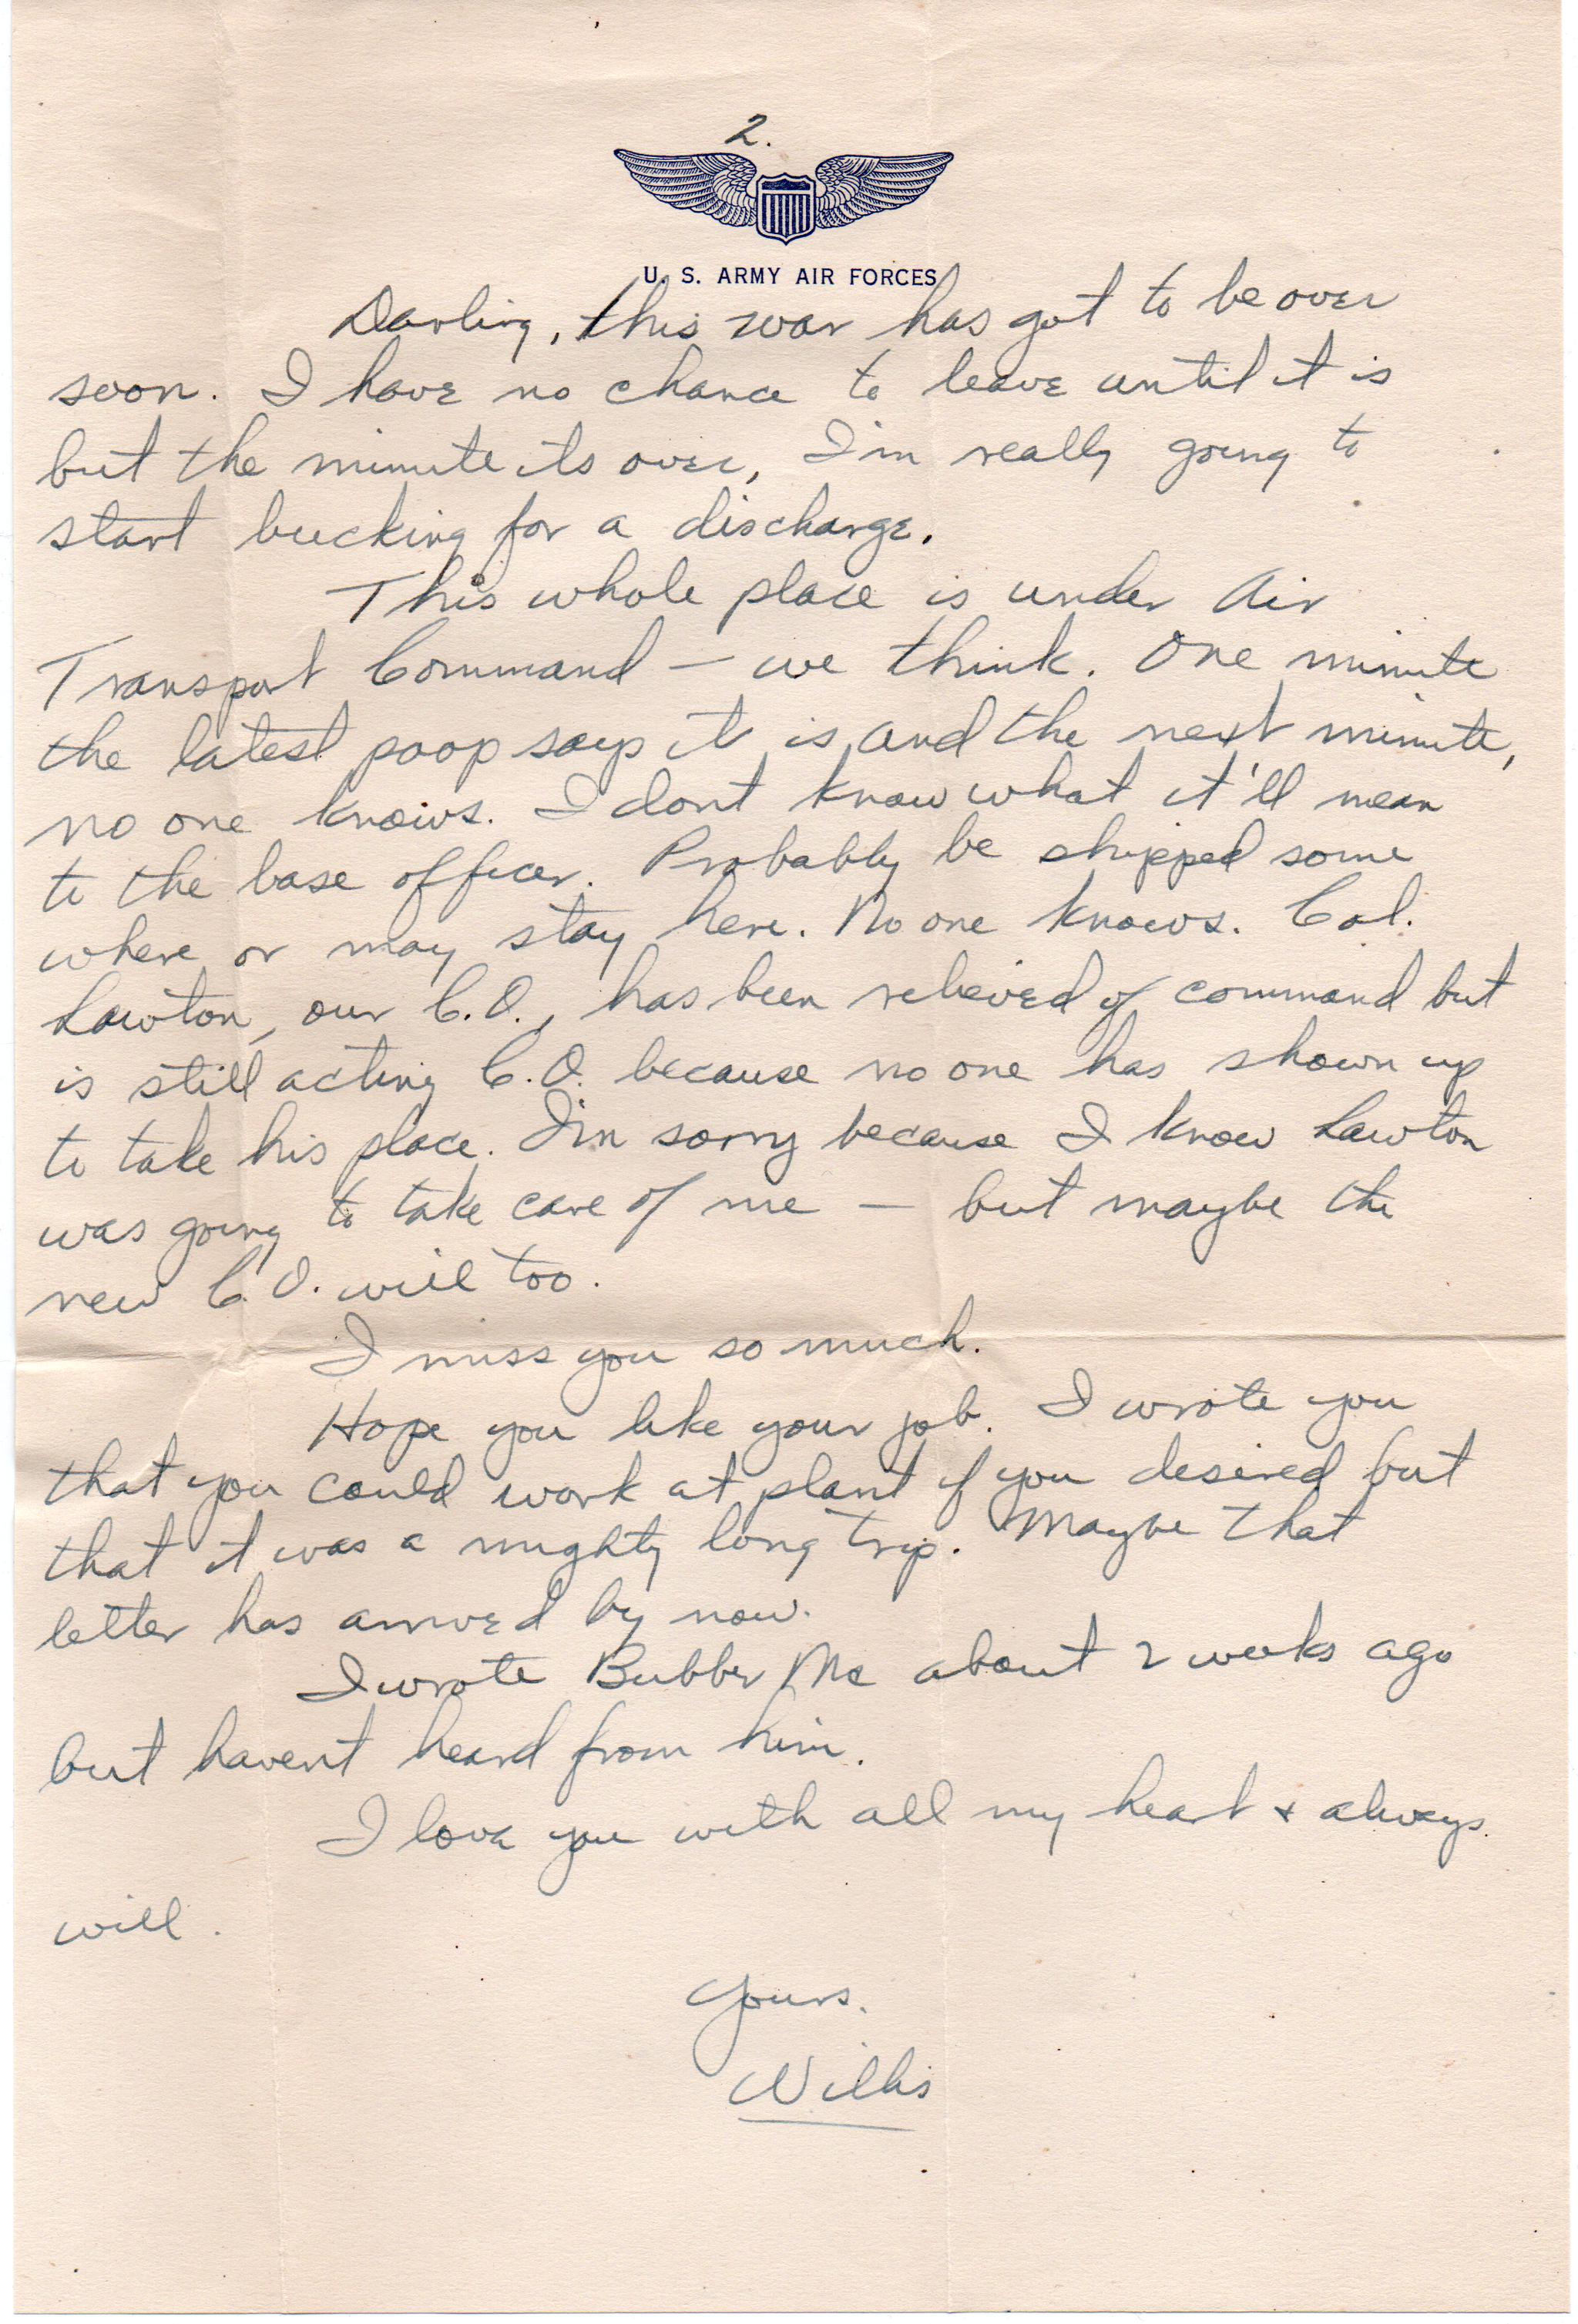 2.
U. S. ARMY AIR FORCES
Darling, this war has got to be over
soon. I have no chance to leave until it is
but the minute its over, I'm really going to
start bucking for a discharge.
This whole place is under Air
Transport Command — we think. One minute
the latest poop says it is and the next minute,
no one knows. I dont know what it'll mean
to the base officer. Probably be shipped some
where or may stay here. No one knows. Col.
Lawton, our C.O., has been relieved of command but
is still acting C.O. because no one has shown up
to take his place. I'm sorry because I know Lawton
was going to take care of me — but maybe the
new C.O. will too.
I miss you so much.
Hope you like your job. I wrote you
that you could work at plant if you desired but
that it was a mighty long trip. Maybe that
letter has arrived by now.
I wrote Bubber Mc about 2 weeks ago
but havent heard from him.
I love you with all my heart & always
will.
Yours.
Willis